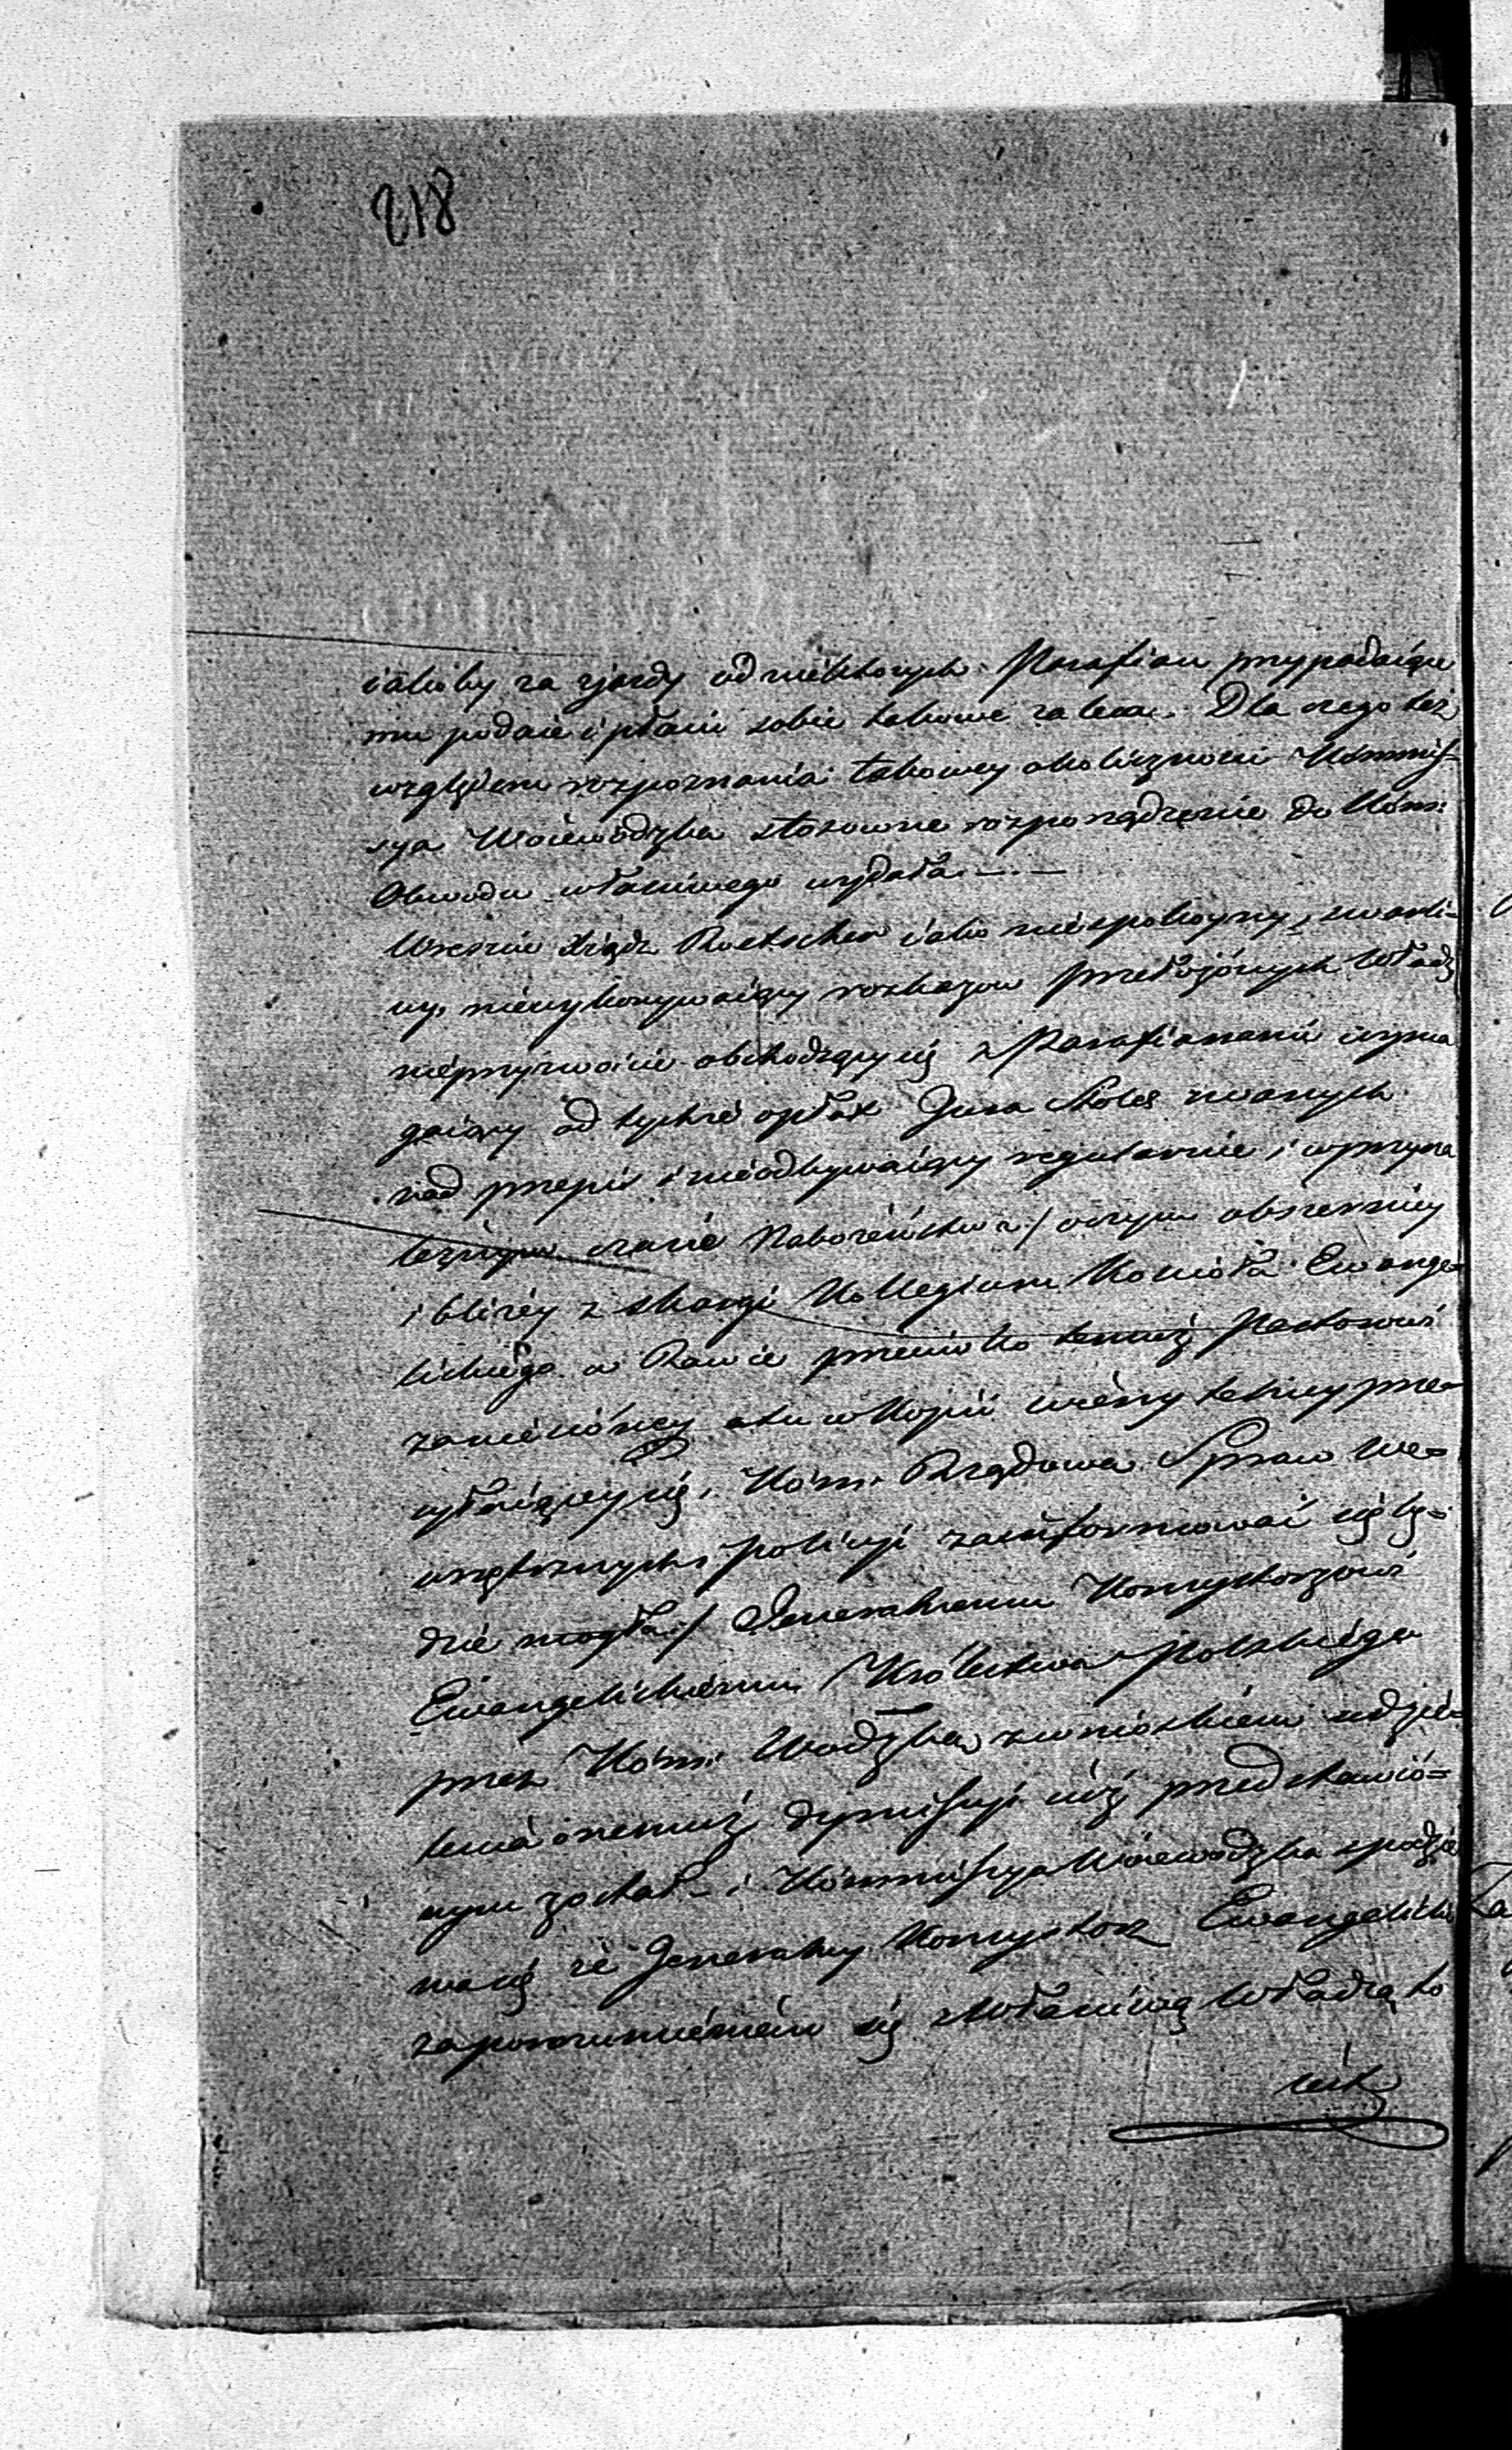 218
iakoby za zjazdy od niektorych Parafian przypadaiące
mu podaie i płacić sobie takowe zaleca. Dla czego też
względem rozpoznania takowey okoliczności Kommis-
sya Woiewodzka stosowne rozporządzenie do Kom:
Obwodu właściwego wydała.—.—
Wreście Xiądz Roetscher iako niespokoyny, swarli-
wy, niewykonywaiący rozkazow przełożonych Władz
nieprzyzwoicie obchodzący się z Parafianami wyma
gaiący od tychże opłat Jura Stolae zwanych
nad przepis i nieodbywaiący regularnie i w przyna
leżnym czasie Nabożeństwa / o czym obszerniey
i bliżéy z skargi Kollegium Kościoła Ewange-
lickiego w Rawie przeciwko temuż Pastorowi
zanieśionéy a tu w Kopii wierzytelney prze-
syłaiącey się, Kom: Rządowa Spraw We-
wnętrznych i Policyi zainformować się bę-
dzie mogła / Jeneralnemu Konsystorzowi
Ewangelickiemu Królestwa Polskiego
przez Kom: Wodzką z wnioskiem udzie-
lenia onemuż dymissyi iuż przedstawio-
nym został — i Kommissya Woiewodzka spodzie
wa się że Jeneralny Konsystorz Ewangelicki
za porozumieniem się z Właściwą Władzą to